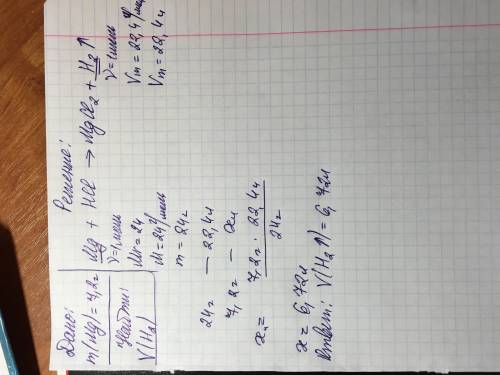 Дано:
m(Mg) = 7,2г
Найти:
V(H₂)
Решение:
Mg + HCl → MgCl₂ + H₂↑
ν=1моль ν=1моль
Mr = 24 Vm = 22,4 л/моль
M = 24 г/моль Vm = 22,4 л
m = 24г
24г — 22,4л
7,2г — xл
x = 7,2г · 22,4л / 24г
x = 6,72л
Ответ: V(H₂↑) = 6,72л